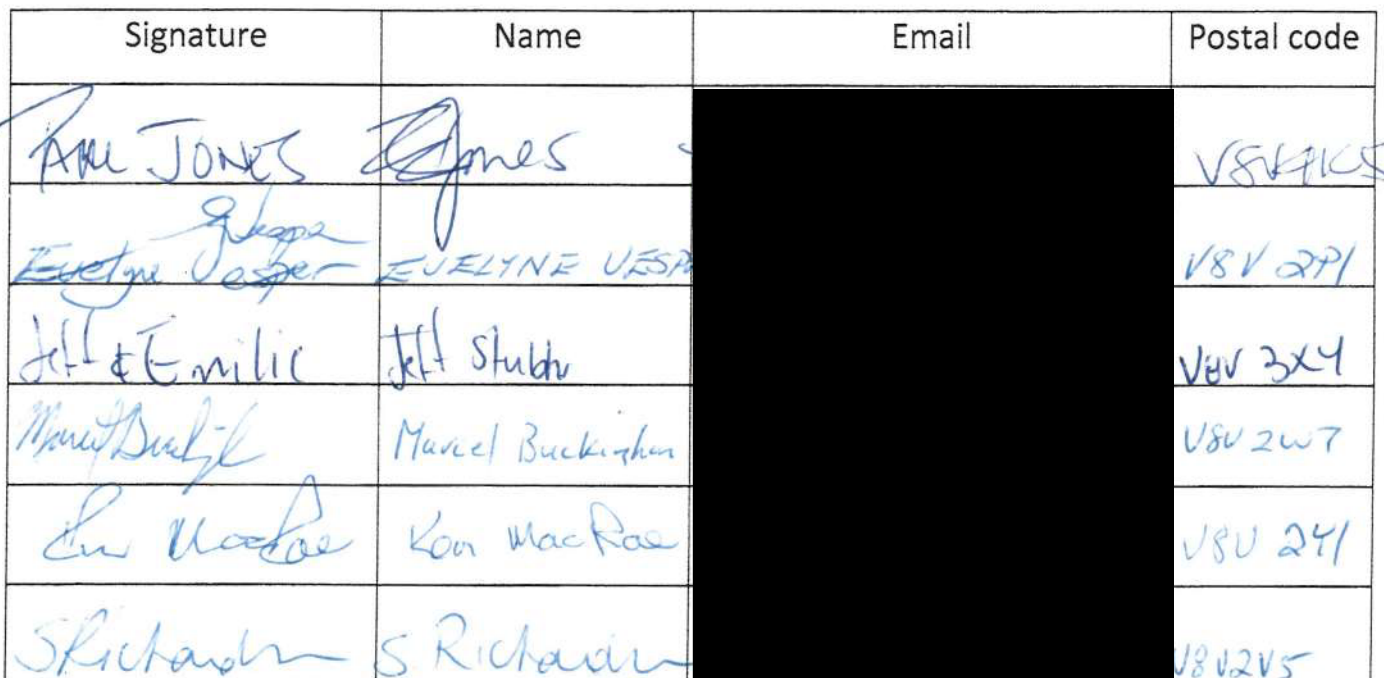 Signature Name Email Postal code
JONES Jones
Evelyne Vesper EVELYNE VESP V8V 2P1
Jeff & Emilie Jeff V8V 3X4
Marcel Buckingham V8V 2W7
MacRae Ken MacRae V8V 2Y1
S Richardson S Richardson V8V2V5